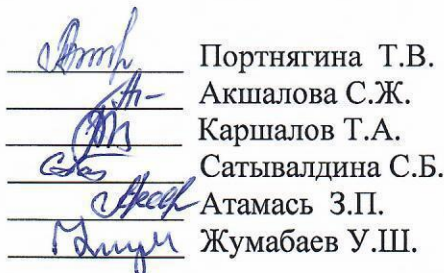 Портнягина Т.В.
Акшалова С.Ж.
Каршалов Т.А.
Сатывалдина С.Б.
Атамась З.П.
Жумабаев У.Ш.